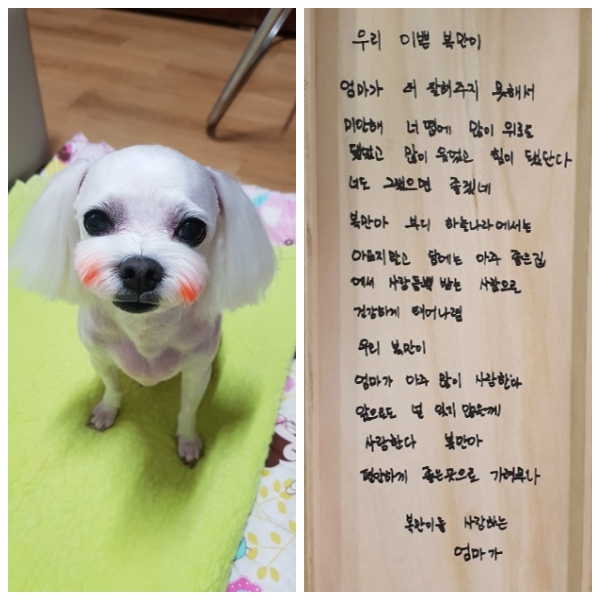 우리 이쁜 복만이
엄마가 더 잘해주지 못해서
미안해 너 땜에 많이 위로도
됐었고 많이 웃었고 힘이 됐단다
너도 그랬으면 좋겠네
복만아 부디 하늘나라에서는
아프지말고 담에는 아주 좋은집
에서 사랑듬뿍 받는 사람으로
건강하게 태어나렴
우리 복만이
엄마가 아주 많이 사랑한다
앞으로도 널 잊지 않을께
사랑한다 복만아
편안하게 좋은곳으로 가려무나
복만이를 사랑하는
엄마가